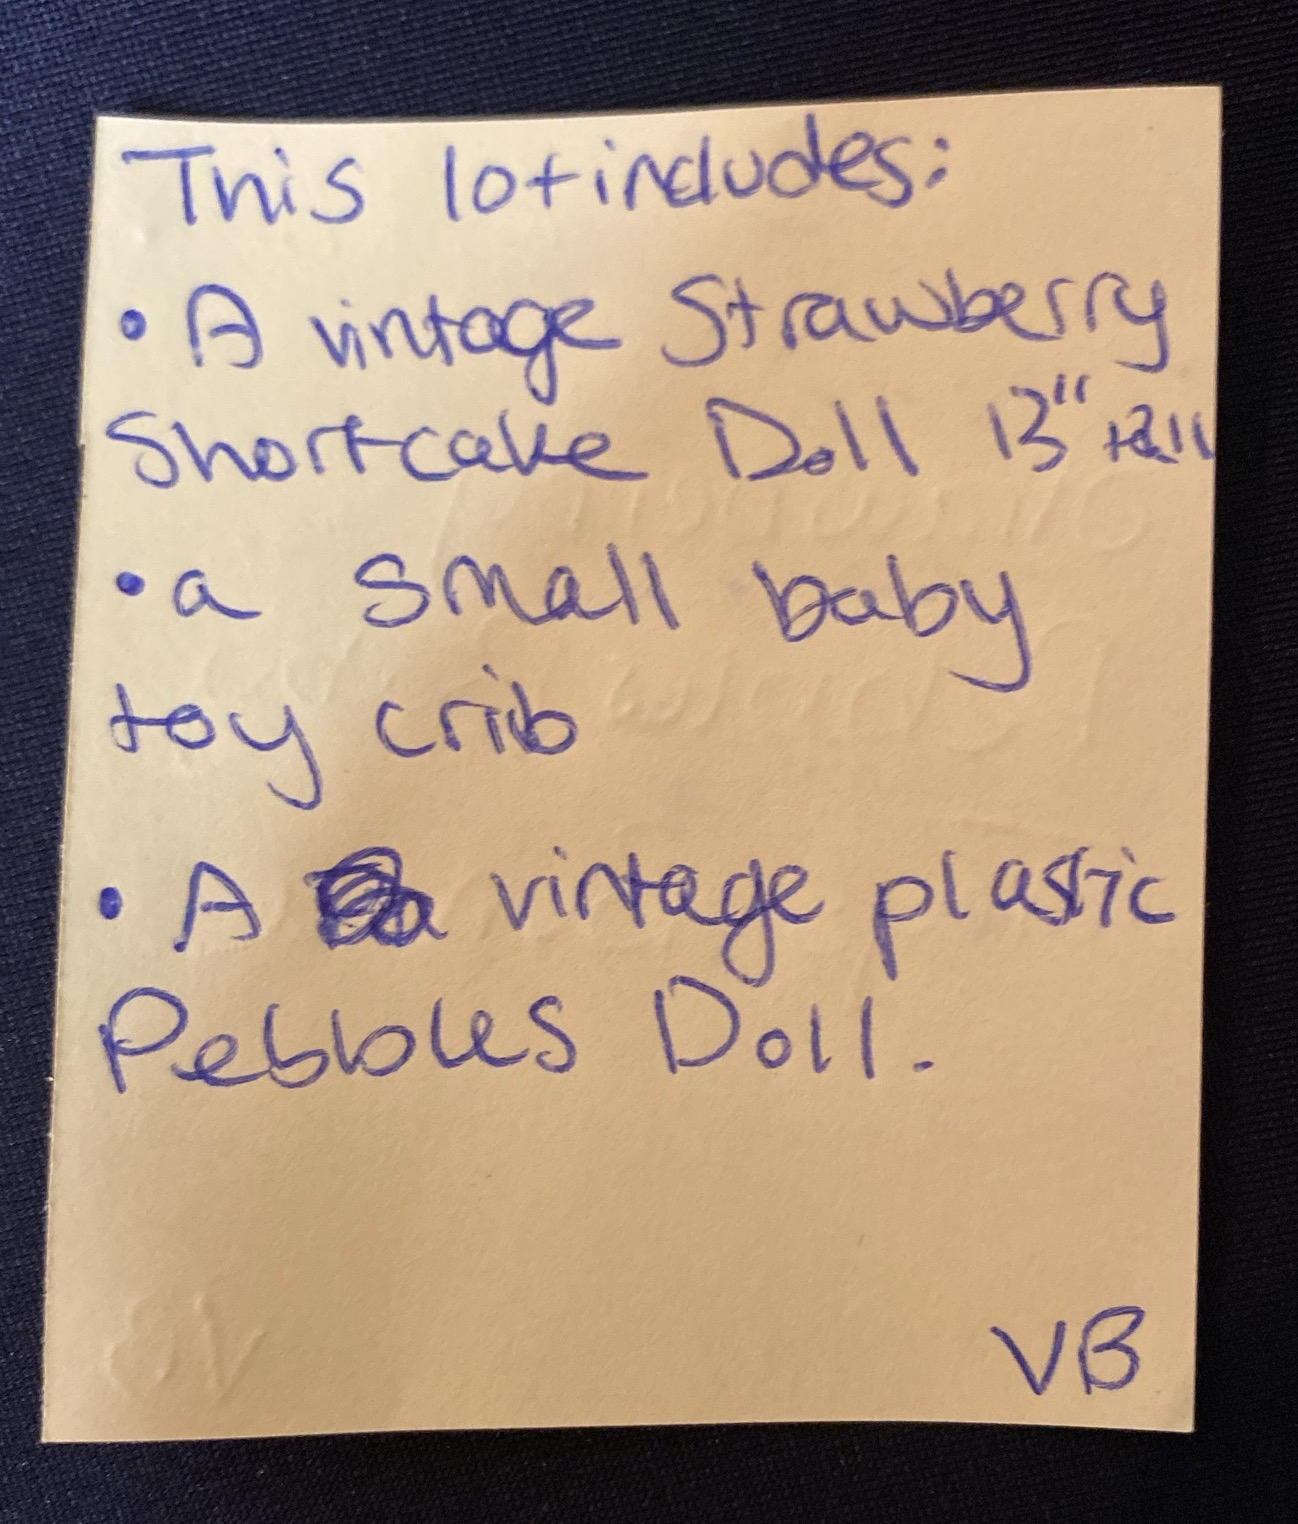 This lot includes:
• A vintage Strawberry
Shortcake Doll 13" tall
• a small baby
toy crib
• A vintage plastic
Pebbles Doll.
VB